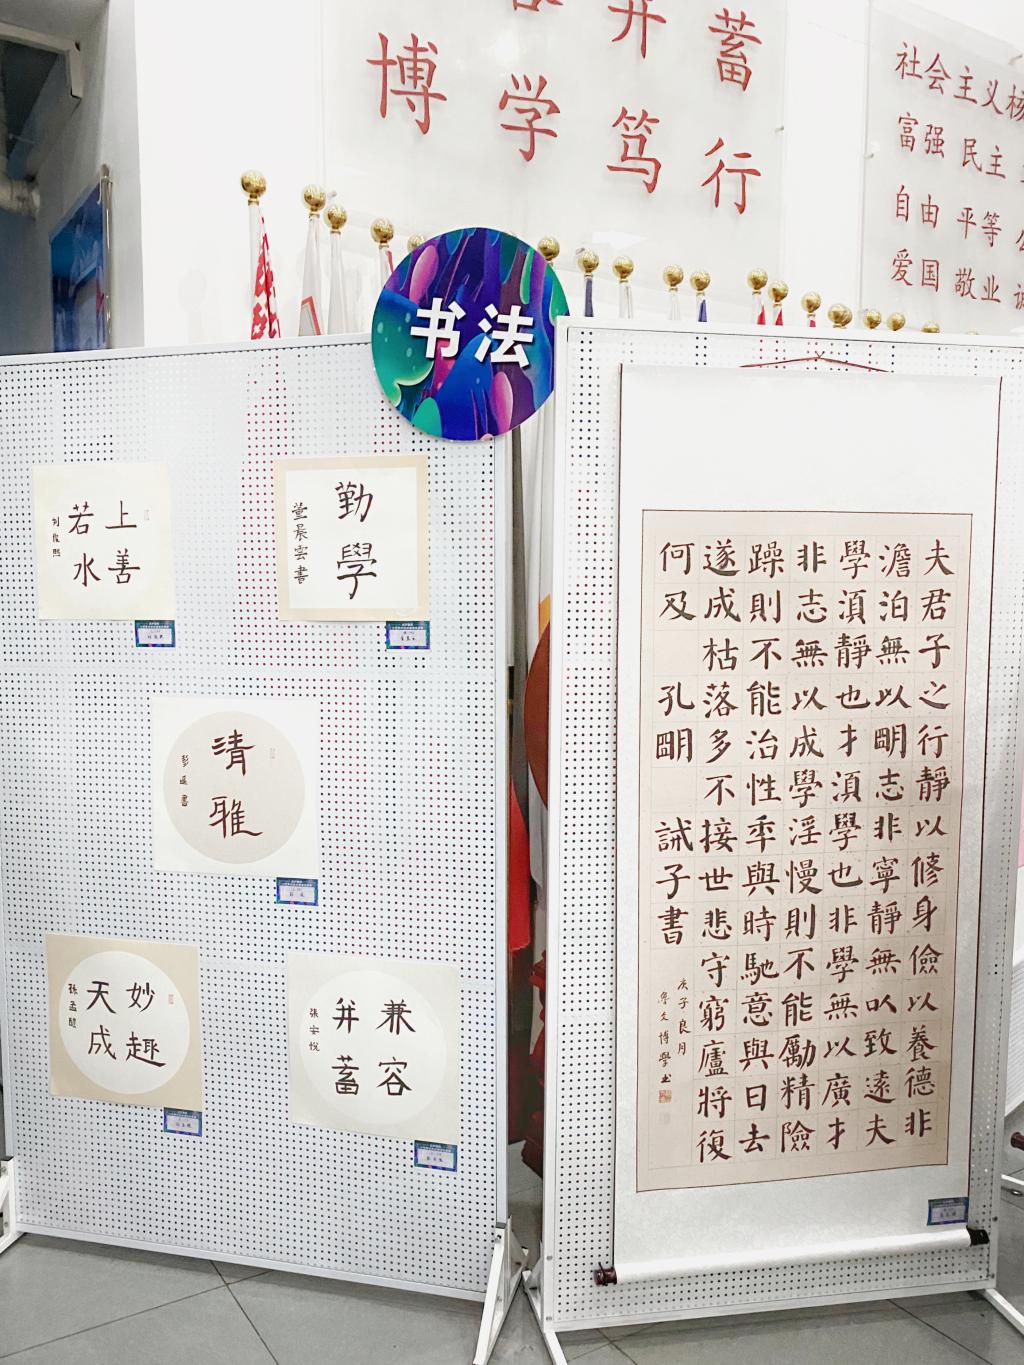 并蓄
博学笃行
社会主义核
富强 民主
自由 平等
爱国 敬业 诚
书法
上善
若水
刘俊熙
勤學
董晨雲書
清雅
妙趣
天成
兼容
并蓄
張安悦
夫君子之行靜以修身儉以養德非
澹泊無以朙志非寧靜無以致遠夫
學湏靜也才湏學也非學無以廣才
非志無以成學淫慢則不能勵精險
躁則不能治性秊與時馳意與日去
遂成枯落多不接世悲守窮廬將復
何及 孔朙 誡子書
庚子良月